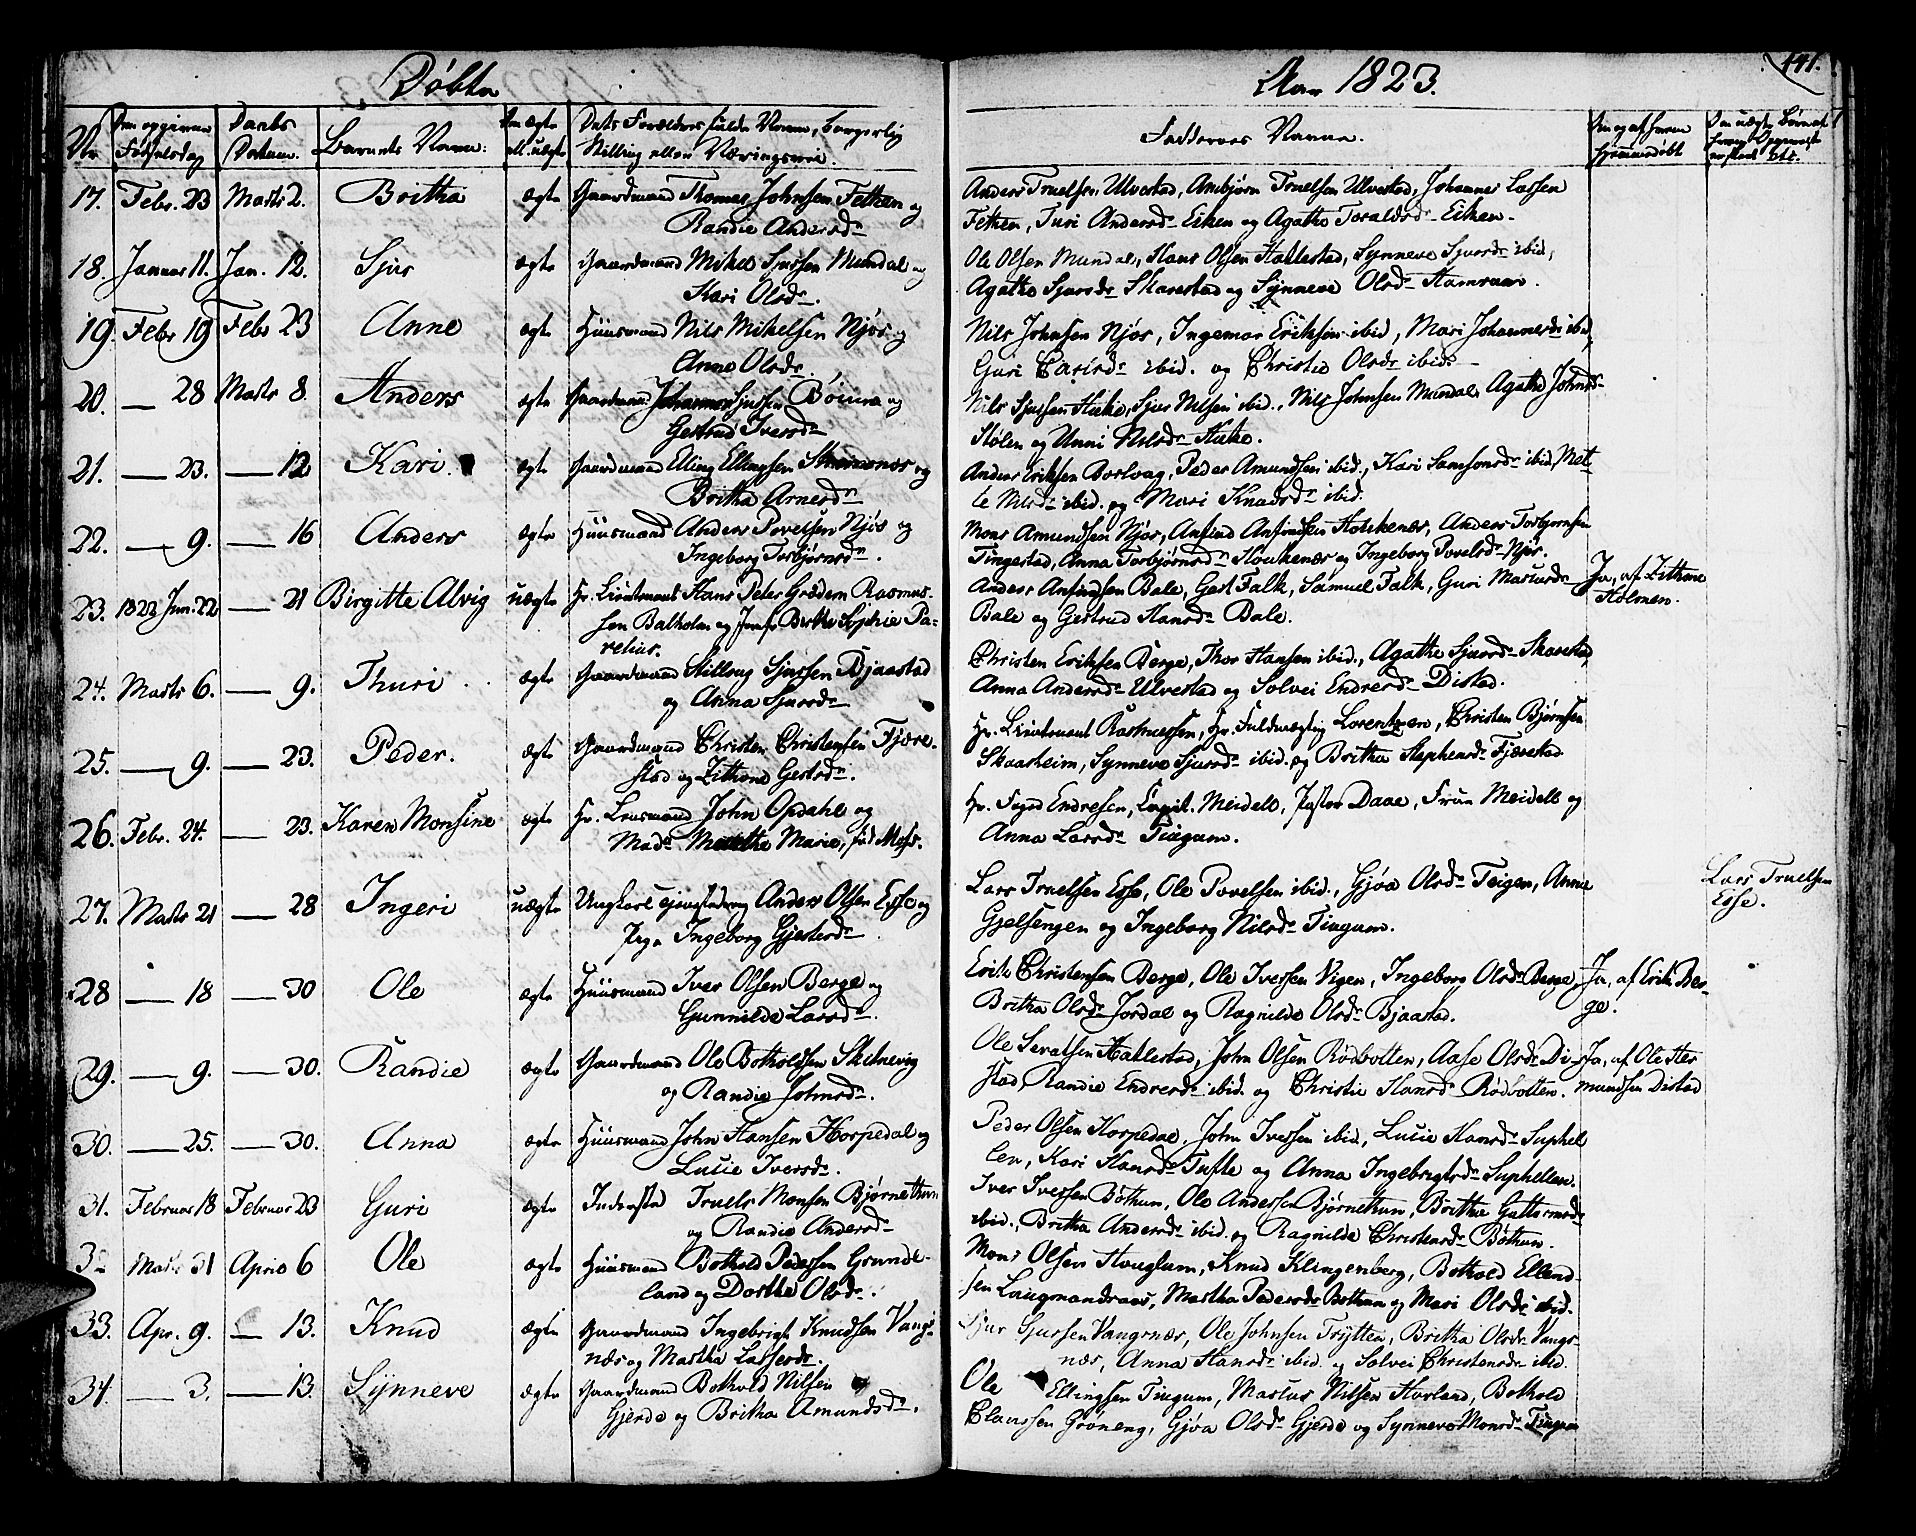 Døbte
Aar 1823.
141.
Nr.
Den opgivne Fødselsdag
Daabs Datum.
Barnets Navn.
Om ægte ell. uægte
Dets Forældres fulde Navne, borgerlig Stilling eller Næringsvei.
Faddernes Navne.
Om og af hvem hjemmedøbt
17. Febr. 23 Marts 2. Britha ægte Gaardmand Thomas Johnsen Fethen og
Randie Andersdr.
Anders Truelsen Ulvestad, Anbjørn Truelsen Ulvestad, Johannes Lassen
Fethen, Turi Andersdr. Eiken og Agathe Toraldsdr. Eiken.
18. Januar 11. Jan. 12. Sjur ægte Gaardmand Mikel Sjursen Mundal og
Kari Olsdr.
Ole Olsen Mundal, Hans Olsen Hallestad, Synneve Sjursdr. ibid,
Agathe Sjursdr. Skarestad og Synneve Olsdr. Hamrum.
19. Febr 19 Febr 23 Anne ægte Huusmand Nils Mikelsen Njøs og
Anne Olsdr.
Nils Johnsen Njøs, Ingemar Eriksen ibid, Mari Johannesdr ibid,
Guri Carlsdr ibid. og Christie Olsdr ibid.
20. — 28 Marts 8. Anders ægte Gaardmand Johannes Sjursen Bøium og
Gertrud Iversdr
Nils Sjursen Huke, Sjur Nilsen ibid., Nils Johnsen Mundal, Agathe Johnsdr
Stølen og Unni Nilsdr. Huke.
21. — 23. — 12 Kari. ægte Gaardmand Elling Ellingsen og
Britha Arnesdr
Anders Eriksen Borlaug, Peder Amundsen ibid., Kari Samsonsdr ibid, Met-
te Nilsdr ibid. og Mari Knudsdr ibid.
22. — 9. — 16 Anders ægte Huusmand Anders Povelsen Njøs og
Ingeborg Torbjørnsdr.
Mons Amundsen Njøs, Anfind Anfindsen Houkenæs, Anders Torbjørnsen
Tingestad, Anna Torbjørnsdr Houkenæs og Ingeborg Povelsdr Njøs.
23. 1822 Jun. 22 — 21 Birgitte Alvig uægte Hr. Lieutenant Hans Peter Grødem Rasmus-
sen Balholm og Jomfr Birthe Sophie Pa-
relius.
Anders Anfindsen Bale, Gert Falk, Samuel Falk, Guri Mariusdr
Bale og Gertrud Hansdr Bale.
Ja, af Zithone
Holmen.
24. Marts 6. — 9. Thuri ægte Gaardmand Stillaug Sjursen Bjaastad
og Anna Sjursdr
Christen Eriksen Berge, Thor Hansen ibid., Agathe Sjursdr Skarestad,
Anna Andersdr Ulvestad og Solvei Endresdr Distad.
25. — 9. — 23. Peder. ægte Gaardmand Christen Christensen Fjære-
stad og Zithone Gertsdr.
Hr. Lieutenant Rasmussen, Hr. Fuldmægtig Lorentzen, Christen Bjørnsen
Skaasheim, Synneve Sjursdr ibid. og Britha Stephensdr Fjærestad
26. Febr. 24. — 23. Karen Monsine ægte Hr. Lensmand John Opdahl og
Madm. Marthe Marie, fød
Hr. Foged Endresen, Capit. Meidell, Pastor Daae, Frue Meidell og
Anna Larsdr Tingum.
27. Marts 21 — 28 Ingeri uægte Ungkarl Anders Olsen Esse og
Pige Ingeborg Gjertsdr
Lars Truelsen Esse, Ole Povelsen ibid., Gjøa Olsdr Teigen, Anne
Gjelsengen og Ingeborg Nilsdr Tingum.
Lars Truelsen
Esse.
28 — 18 — 30 Ole ægte Huusmand Iver Olsen Berge og
Gunnilde Larsdr.
Erik Christensen Berge, Ole Iversen Vigen, Ingeborg Olsdr Berge,
Britha Olsdr Jordal og Ragnilde Olsdr Bjaastad.
Ja, af Erik Ber-
ge.
29. — 9. — 30. Randie ægte Gaardmand Ole Botholdsen Skitnevig
og Randie Johnsdr.
Ole Hallestad, John Olsen Rødbotten, Aase Olsdr Di-
stad, Randie Endresdr ibid. og Christie Hansdr Rødbotten.
Ja, af Ole Her
mundsen Distad
30. — 25. — 30. Anna ægte Huusmand John Hansen Horpedal og
Lucie Iversdr.
Peder Olsen Horpedal, John Iversen ibid, Lucie Hansdr Suphel
len, Kari Hansdr Tufte og Anna Ingebrigtsdr Suphellen.
31. Februar 18 Februar 23 Guri ægte Inderste Truels Monsen Bjørnethun
og Randie Andersdr
Iver Iversen Bøthun, Ole Andersen Bjørnethun, Britha Guttormsdr
ibid., Britha Andersdr ibid. og Ragnilde Christensdr Bøthun.
32 Marts 31 April 6 Ole ægte Huusmand Bothold Pedersen Grinde-
land og Dorthe Olsdr.
Mons Olsen Houglum, Knud Klingenberg, Bothold Ellend-
sen Laugmandraas, Martha Pedersdr Bothun og Mari Olsdr ibid.
33. Apr. 9. — 13. Knud ægte Gaardmand Ingebrigt Knudsen Vangs-
næs og Martha Lassesdr.
Sjur Sjursen Vangsnæs, Ole Johnsen Trytten, Britha Olsdr Vangs-
næs, Anna Hansdr ibid. og Solvei Christensdr ibid.
34. — 3. — 13. Synneve ægte Gaardmand Bothold Nilsen
Gjerde og Britha Amundsdr.
Ole Ellingsen Tingum, Marcus Nilsen Hovland, Bothold
Claussen Grøneng, Gjøa Olsdr Gjerde og Synneve Monsdr Tingum